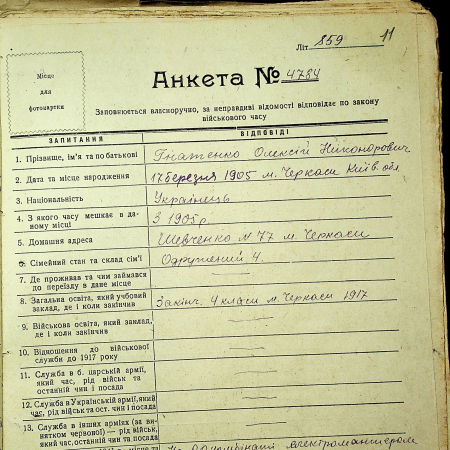 Літ. 859
11
Місце
для
фотокартки
Анкета № 4784
Заповнюється власноручно, за неправдиві відомості відповідає по закону
військового часу
ЗАПИТАННЯ ВІДПОВІДІ
1. Прізвище, ім'я та по батькові Гнатенко Олексій Никонорович
2. Дата та місце народження 17 березня 1905 м. Черкаси Київ. обл.
3. Національність Українець
4. З якого часу мешкає в да-
ному місці З 1905 р.
5. Домашня адреса Шевченко N 77 м. Черкаси
6. Сімейний стан та склад сім'ї Одружений 4.
7. Де проживав та чим займався
до переїзду в дане місце
8. Загальна освіта, який учбовий
заклад, де і коли закінчив Закінч. 4 класи м. Черкаси 1917
9. Військова освіта, який заклад,
де і коли закінчив
10. Відношення до військової
служби до 1917 року
11. Служба в б. царській армії,
який час, рід військ та
останній чин і посада
12. Служба в Українській армії, який
час, рід військ та ост. чин і посада
13. Служба в інших арміях (за ви-
нятком червоної) — рід військ,
який час, останній чин та посада
електромонтером